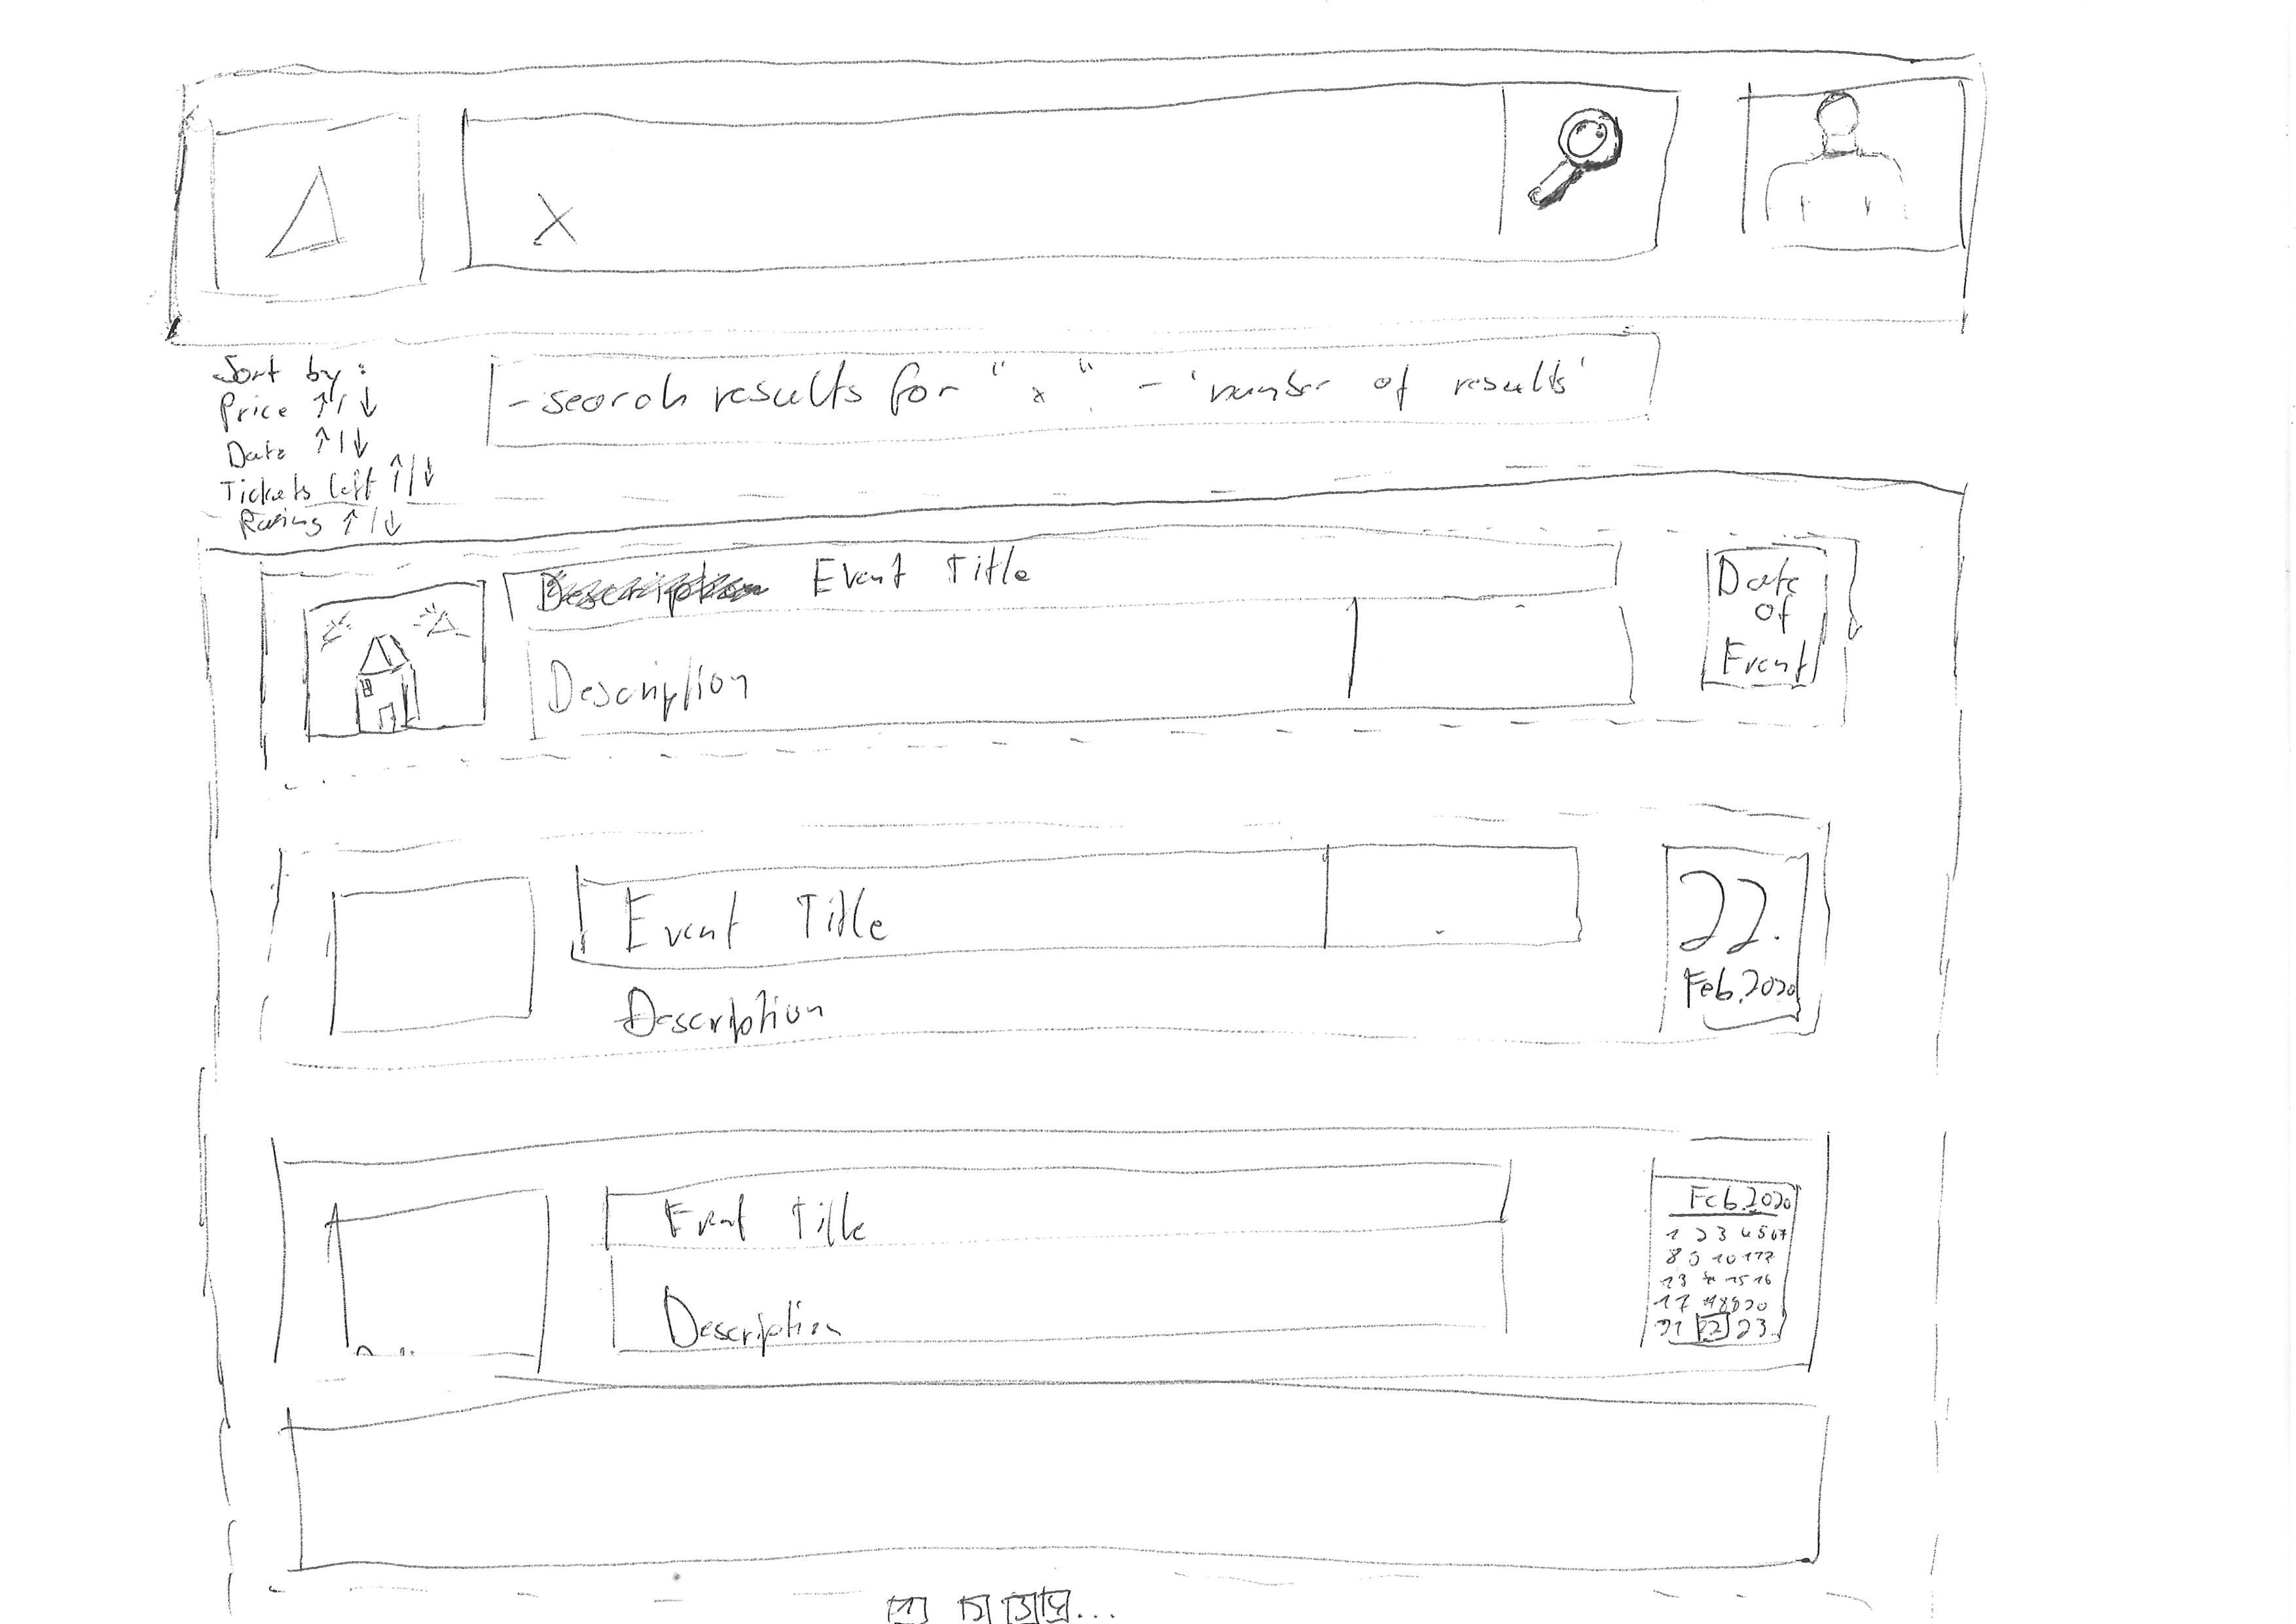 X
Sort by:
Price ↑/↓
Date ↑/↓
Tickets left ↑/↓
Rating ↑/↓
- search results for "x" - 'number of results'
Event Title
Description
Date
of
Event
Event Title
Description
22.
Feb.2020
Event Title
Description
Feb.2020
1 2 3 4 5 6 7
8 9 10 11 12
13 14 15 16
17 18 19 20
21 22 23
1 2 3 4 ...